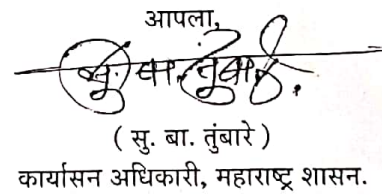 आपला,
सु. बा. तुंबारे.
( सु. बा. तुंबारे )
कार्यासन अधिकारी, महाराष्ट्र शासन.